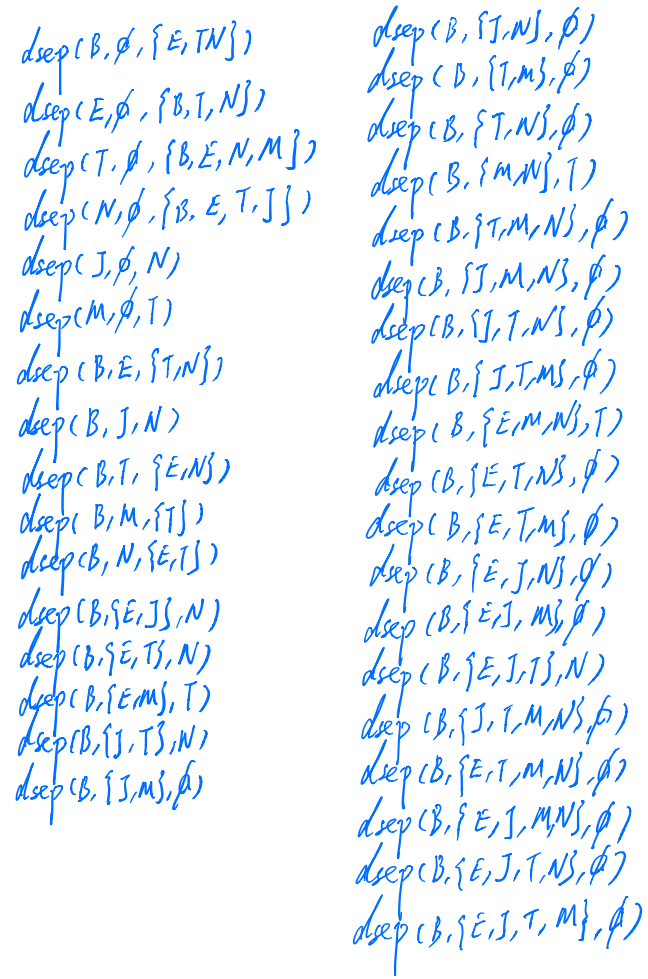 dsep(B,∅,{E,TN})
dsep(E,∅,{B,T,N})
dsep(T.∅,{B,E,N,M})
dsep(N,∅,{B,E,T,J})
dsep(J,∅,N)
dsep(M,∅,T)
dsep(B,E,{T,N})
dsep(B,J,N)
dsep(B,T,{E,N})
dsep(B,M,{T})
dsep(B,N,{E,T})
dsep(B,{E,J},N)
dsep(B,{E,T},N)
dsep(B,{E,M},T)
dsep(B,{J,T},N)
dsep(B,{J,M},∅)
dsep(B,{J,N},∅)
dsep(B,{T,M},∅)
dsep(B,{T,N},∅)
dsep(B,{M,N},T)
dsep(B,{T,M,N},∅)
dsep(B,{J,M,N},∅)
dsep(B,{J,T,N},∅)
dsep(B,{J,T,M},∅)
dsep(B,{E,M,N},T)
dsep(B,{E,T,N},∅)
dsep(B,{E,T,M},∅)
dsep(B,{E,J,N},∅)
dsep(B,{E,J,M},∅)
dsep(B,{E,J,T},N)
dsep(B,{J,T,M,N},∅)
dsep(B,{E,T,M,N},∅)
dsep(B,{E,J,M,N},∅)
dsep(B,{E,J,T,N},∅)
dsep(B,{E,J,T,M},∅)